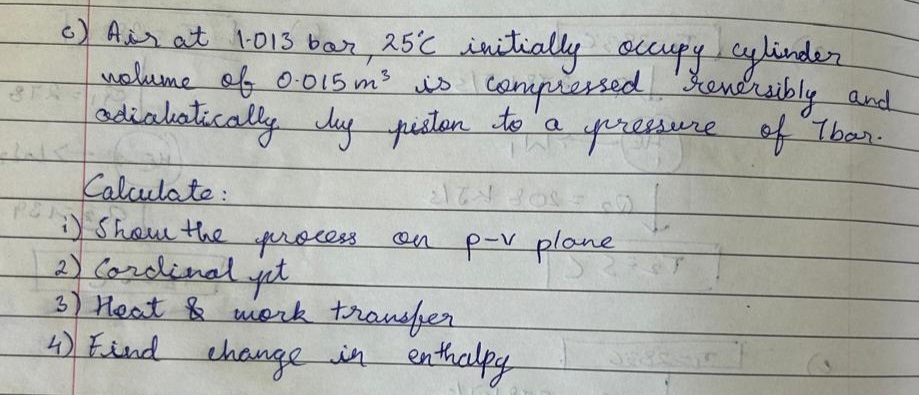 c) Air at 1.013 bar, 25°C initially occupy cylinder
volume of 0.015 m³ is compressed reversibly and
adiabatically by piston to a pressure of 7bar.
Calculate:
i) Show the process on p-v plane
2) Cordinal pt
3) Heat & work transfer
4) Find change in enthalpy